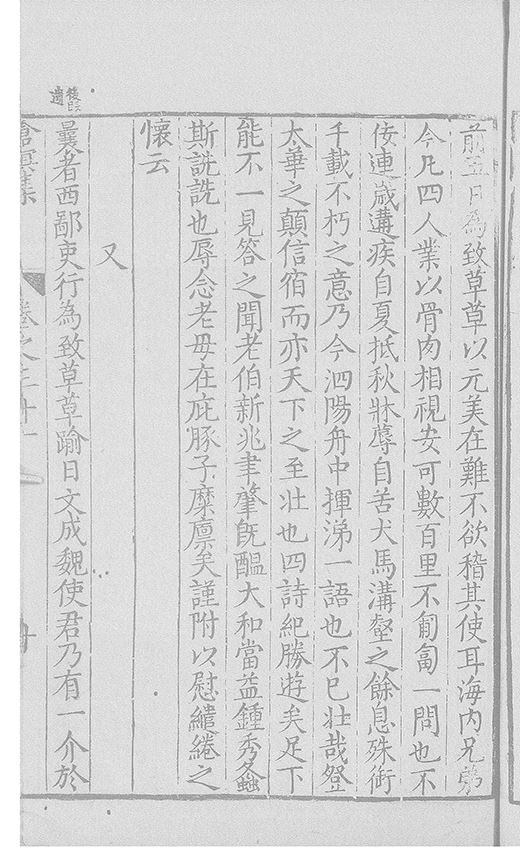 前五日為致草草以元美在難不欲稽其使耳海内兄弟
今凡四人業以骨肉相視安可數百里不匍匐一問也不
佞連歲遘疾自夏抵秋牀蓐自苦犬馬溝壑之餘息殊銜
千載不朽之意乃今泗陽舟中揮涕一語也不已壯哉登
太華之顛信宿而亦天下之至壯也四詩紀勝遊矣足下
能不一見答之聞老伯新兆聿肇旣醖大和當益鍾秀螽
斯詵詵也辱念老母在庇豚子糜廩矣謹附以慰繾綣之
懷云
又
曩者西鄙吏行為致草草踰日文成魏使君乃有一介於
滄溟集
卷之三十